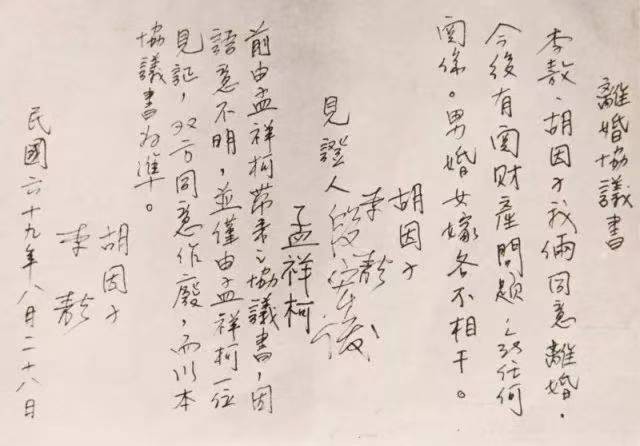 離婚協議書
李敖、胡因子我倆同意離婚。
今後有関財產問題,任何
関係。男婚女嫁各不相干。
胡因子
李敖
見證人 段宏俊
孟祥柯
前由孟祥柯帶来之協議書,因
語意不明,並僅由孟祥柯一位
見証,双方同意作廢,而以本
協議書为準。
胡因子
李敖
民國六十九年八月二十八日